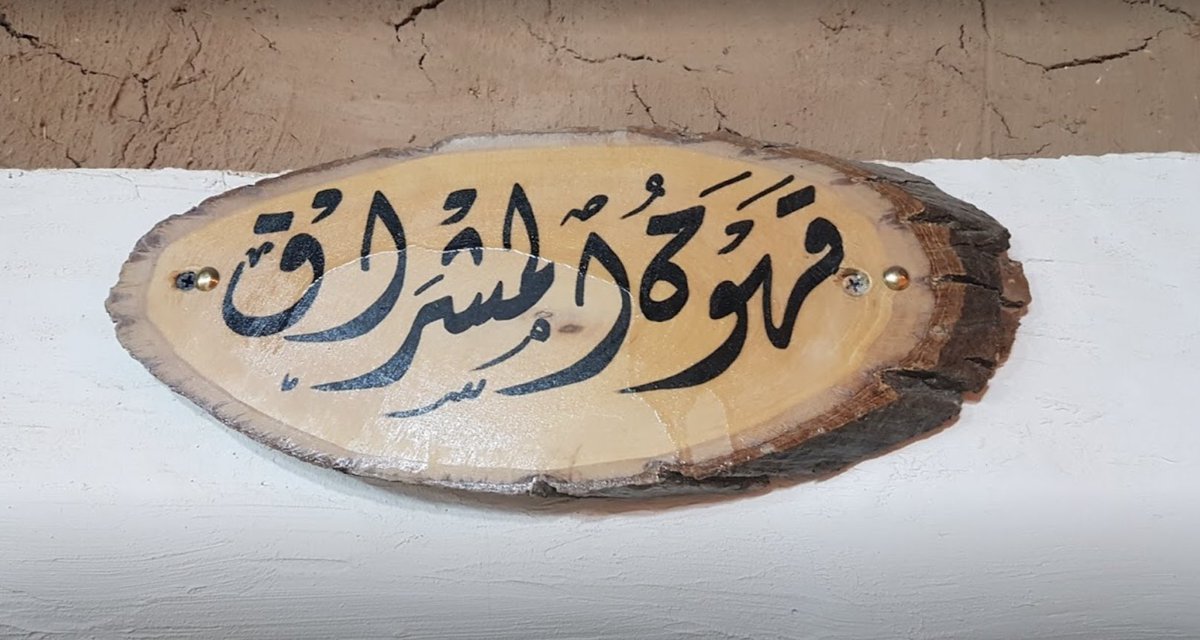 قَهْوَةُ المشْرَاق